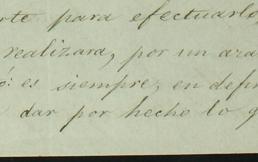 rte para efectuarlo,
realizara, por un aza
o: es siempre, en defi
dar por hecho lo q